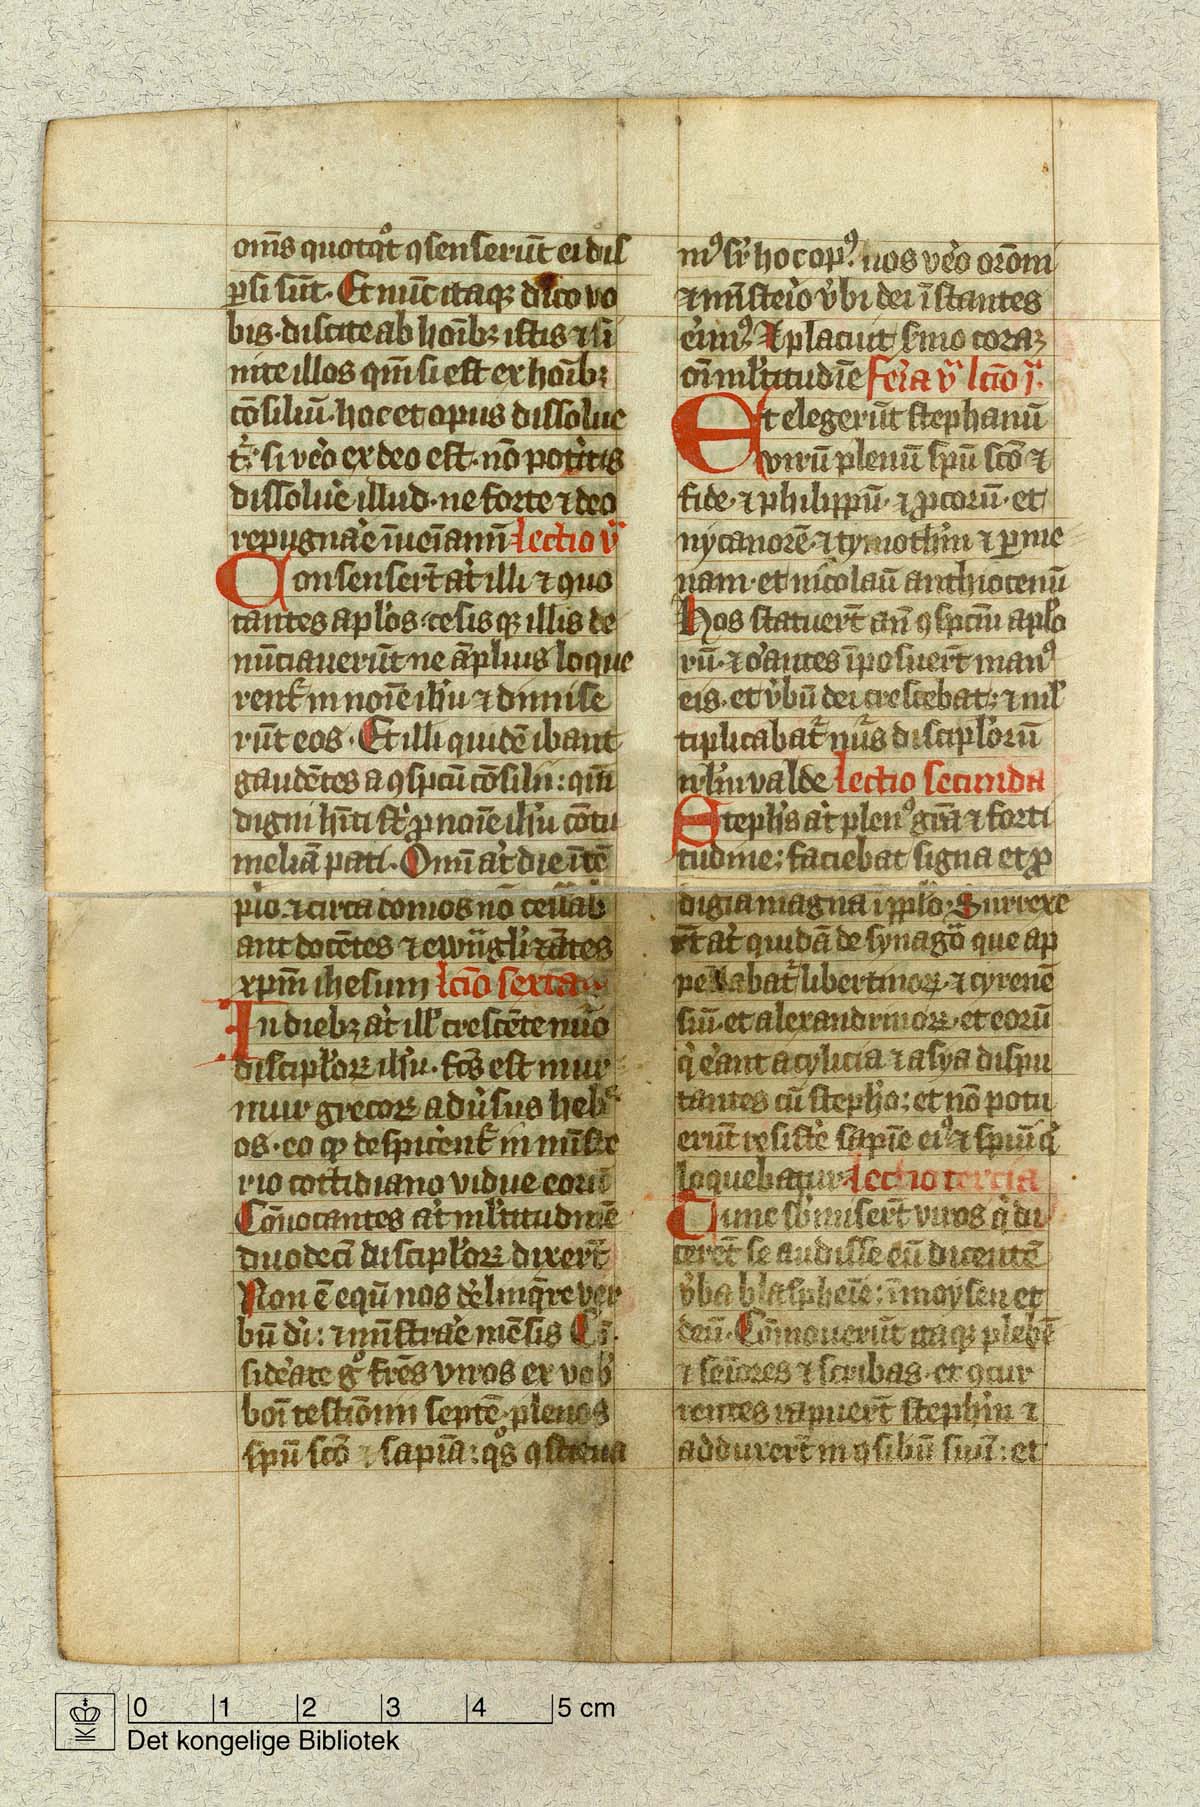 om̄s quotq̊t ꝯsenserūt ei dis
ꝑsi sūt. Et nūc itaqꝫ dico vo
bis. discite ab hoībꝫ istis ⁊ si
nite illos qm̄ si est ex hoībꝫ
cōsiliū. hoc et opus dissolue
t᷑. si v̓o ex deo est. nō pot̓itis
dissolu̓e illud. ne forte ⁊ deo
repugna̓e īueīamī lectio v̊
Consensert̄ at̓ illi ⁊ quo
cantes apl̓os. cesisqꝫ illis de
nūciauerūt ne āplius loque
rent᷑ in noīe ih̓u ⁊ dimise
rūt eos. Et illi quidē ibant
gaudētes a ꝯspcū cōsilii: qm̄
digni hīti st̓ ꝓ noīe ih̓u cōtu
meliā pati. Omī at̓ die ī tē
plo ⁊ circa domos nō cessab
ant docētes ⁊ ewāgl̓izātes
xpm̄ ihesum lc̄io sexta
In diebꝫ at̓ ill̓ crescēte nūo
discipl̓oꝝ ih̓u. fc̄s est mur
mur grecoꝝ adu̓sus heb
os. eo ꝙ despicent᷑ in mīste
rio cottidiano vidue eorū
Cōuocantes at̓ ml̓titudinē
duodecī discipl̓oꝝ dixert̄
Non ē equū nos de̓linq̄re ver
bū di: ⁊ mīstra̓e mēsis Cō
side̓ate g̊ fr̄es viros ex vob̓
boī testiōnii septē plenos
spū scō ⁊ sapīa: q̊s ꝯstitua
mꝰ sr̓ hoc opꝰ. nos v̓o orōni
⁊ mīste̓io v̓bi dei īstantes
e̓imꝰ. Et placuit s̓mo coraꝫ
oī ml̓titudīe Fe̓ia v̊ lc̄io j̊.
Et elegerūt stephanū
virū plenū spū scō ⁊
fide. ⁊ philippū. ⁊ ꝓcorū. et
nycanorē. ⁊ tymoth̓m ⁊ ꝑme
nam. et nicolaū anthiocenū
Hos statuert̄ an̄ ꝯspcm̄ apl̓o
rū. ⁊ o̓antes īposuert̄ manꝰ
eis. et v̓bū dei crescebat: ⁊ ml̓
tiplicabat᷑ nūs discipl̓orū
irl̓m valde lectio secunda
Steph̓s at̓ plenꝰ gr̄a ⁊ forti
tudine: faciebat signa et ꝓ
digia magna ī pplo. Surrexe
rt̄ at̓ quidā de synagōa que ap
pellabat᷑ libertinoꝝ. ⁊ cyrenē
siū. et alexandrinoꝝ. et eorū
q̓ e̓ant a cylicia ⁊ asya dispu
tantes cū steph̓o: et nō potu
erūt resiste̓ sapīe eiꝰ ⁊ spiūi q̓
loquebatur lectio tercia
Tunc sb̓misert̄ viros q̓ di
cerēt se audisse eū dicentē
v̓ba blasphēie: ī moysen et
deū. Cōmouerūt itaqꝫ plebē
⁊ seīores ⁊ scribas. et ꝯcur
rentes rapuert̄ steph̓m ⁊
adduxert̄ in ꝯsiliū suū: et
0 1 2 3 4 5 cm
Det kongelige Bibliotek